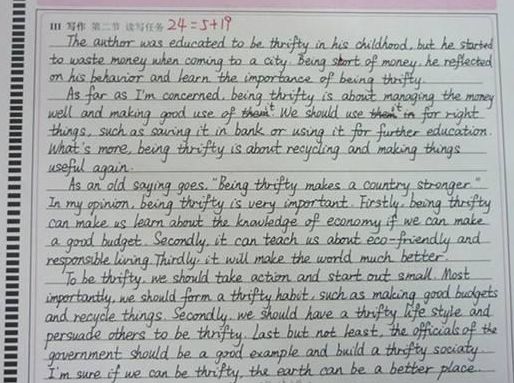 III 写作 第二节 读写任务 24=5+19
The author was educated to be thrifty in his childhood, but he started
to waste money when coming to a city. Being short of money, he reflected
on his behavior and learn the importance of being thrifty.
As far as I'm concerned, being thrifty is about managing the money
well and making good use of them it. We should use them it in for right
things, such as saving it in bank or using it for further education.
What's more, being thrifty is about recycling and making things
useful again.
As an old saying goes, "Being thrifty makes a country stronger."
In my opinion, being thrifty is very important. Firstly, being thrifty
can make us learn about the knowledge of economy if we can make
a good budget. Secondly, it can teach us about eco-friendly and
responsible living. Thirdly, it will make the world much better.
To be thrifty, we should take action and start out small. Most
importantly, we should form a thrifty habit, such as making good budgets
and recycle things. Secondly, we should have a thrifty life style and
persuade others to be thrifty. Last but not least, the officials of the
government should be a good example and build a thrifty society.
I'm sure if we can be thrifty, the earth can be a better place.